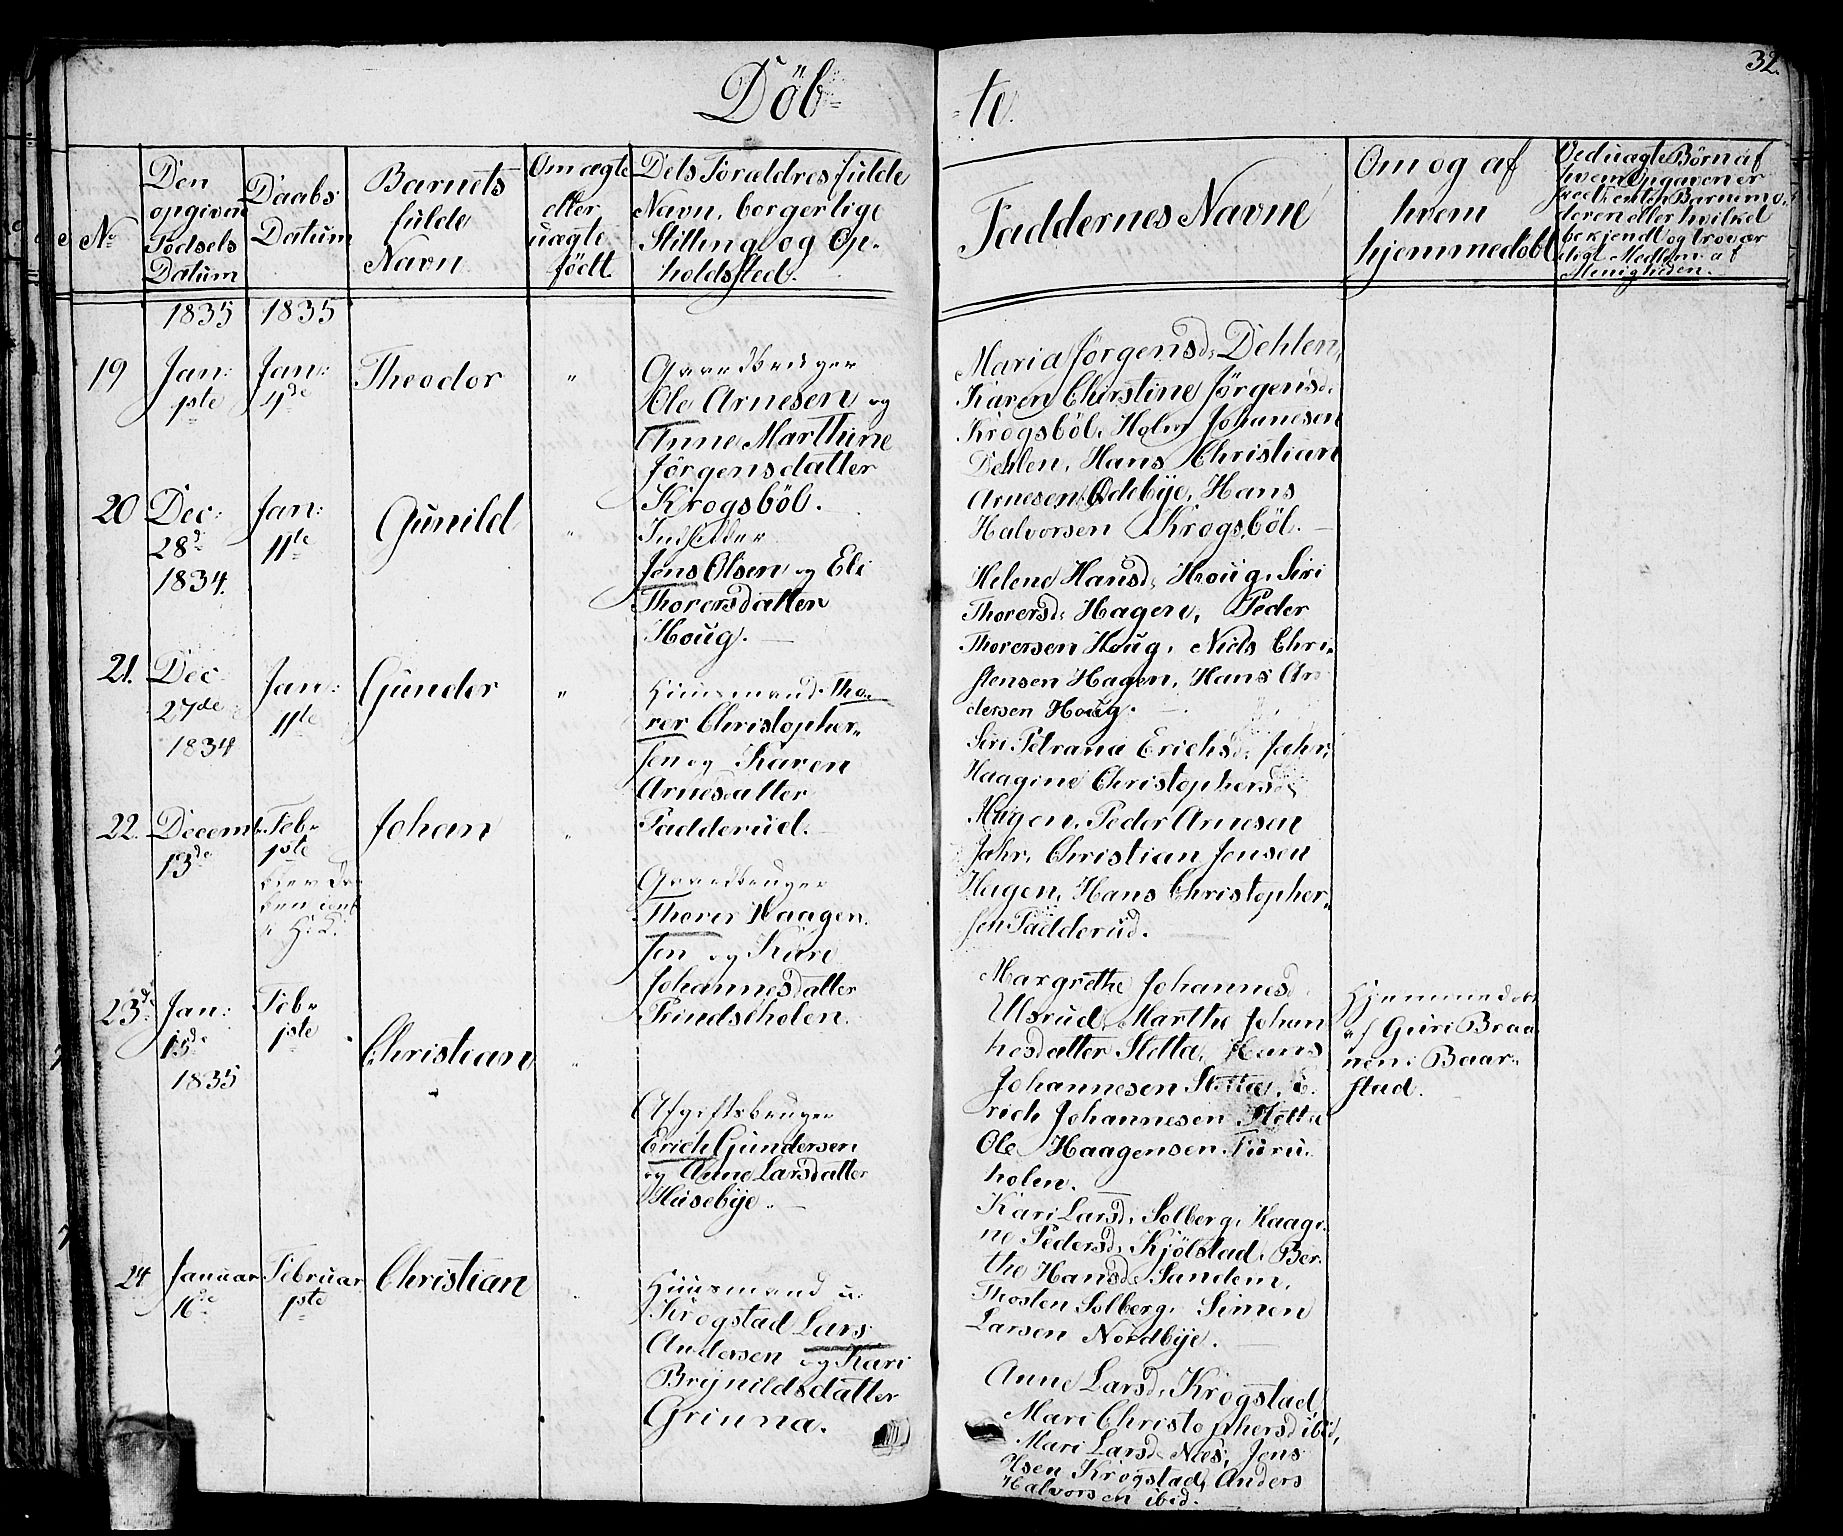 32.
Döb-
-te.
No
Den
opgivne
Födsels
Datum
Daabs
Datum
Barnets
fulde
Navn
Om ægte
eller
uægte
födt.
Dets Forældres fulde
Navn, borgerlige
Stilling og Op-
holdssted.
Faddernes Navne
Om og af
hvem
hjemmedöbt
Ved uægte Börn af
hvem Opgaven er
skeet, enten Barnemo-
deren eller hvilket
bekjendt og trovær
digt Medlem af
Menigheden.
1835
1835
19
Jan:
1ste
Jan:
4de
Theodor
"
Gaardbruger
Ole Arnesen og
Anne Marthine
Jörgensdatter
Krogsböl.
Maria Jörgensd: Dehlen,
Karen Chirstine Jörgensd:
Krogsböl, Holm Johanesen
Dehlen, Hans Christian
Arnesen Odebÿe, Hans
Halvorsen Krogsböl.
20
Dec:
28d:
1834.
Jan:
11te
Gunild
"
Indsidder
Jens Olsen og Eli
Thorersdatter
Houg.
Helene Hansd: Houg, Siri
Thorersd: Hagen, Peder
Thorersen Houg, Niels Chri-
stensen Hagen, Hans An
dersen Houg.
21.
Dec
27de
1834
Jan:
11te
Gunder
"
Huusmand Tho-
rer Christopher-
sen og Karen
Arnesdatter
Fadderud.
Siri Petrana Erichsd: Jahr,
Haagine Christophersd:
Hagen, Peder Arnesen
Jahr, Christian Jensen
Hagen, Hans Christopher-
sen Fadderud.
22.
Decemb.
13de
Feb-
1ste
H: D:
Johan
"
Gaardbruger
Thorer Haagen
sen og Kari
Johannesdatter
Margrethe Johannesd
Ulsrud, Marthe Johan
nesdatter Stetta, Hans
Johannesen Stetta, E-
rich Johannesen Stetta
Ole Haagensen Furu-
holen.
Hjemmedöbt
af Guri Braa
nen i Baar-
stad.
23d:
Jan:
15de
1835
Feb-
1ste
Christian
"
Afgiftsbruger
Erich Gundersen
og Anne Larsdatter
Husebÿe.
Kari Larsd: Solberg, Haagi-
ne Pedersd: Kjölstad, Ber-
the Hansd: Sandem,
Thosten Solberg, Simen
Larsen Nordbÿe.
24
Januar
16de
Februar
1ste
Christian
"
Huusmand u:
Krogstad Lars
Andersen og Kari
Brÿnildsdatter
Grinna.
Anne Larsd: Krogstad,
Mari Christophersd ibid,
Mari Larsd: Næs, Jens
Krogstad, Anders
Halvorsen ibid.